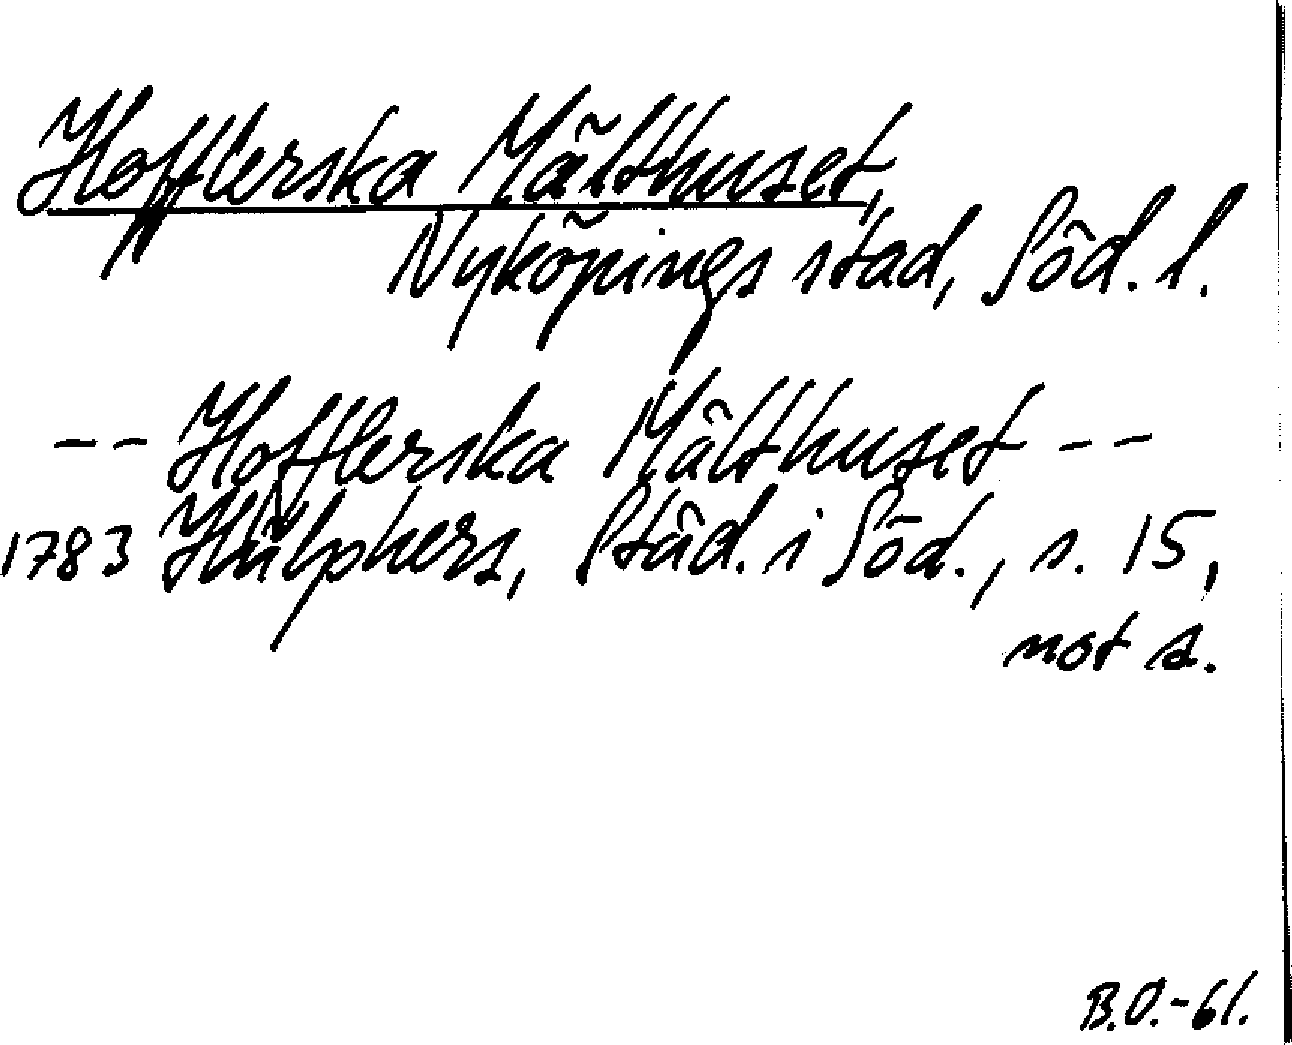 Hofflerska Mälthuset,
Nyköpings stad, Söd. l.
-- Hofflerska Mälthuset --
1783 Hülphers, Städ. i Söd., s. 15,
not a.
B.O.-61.